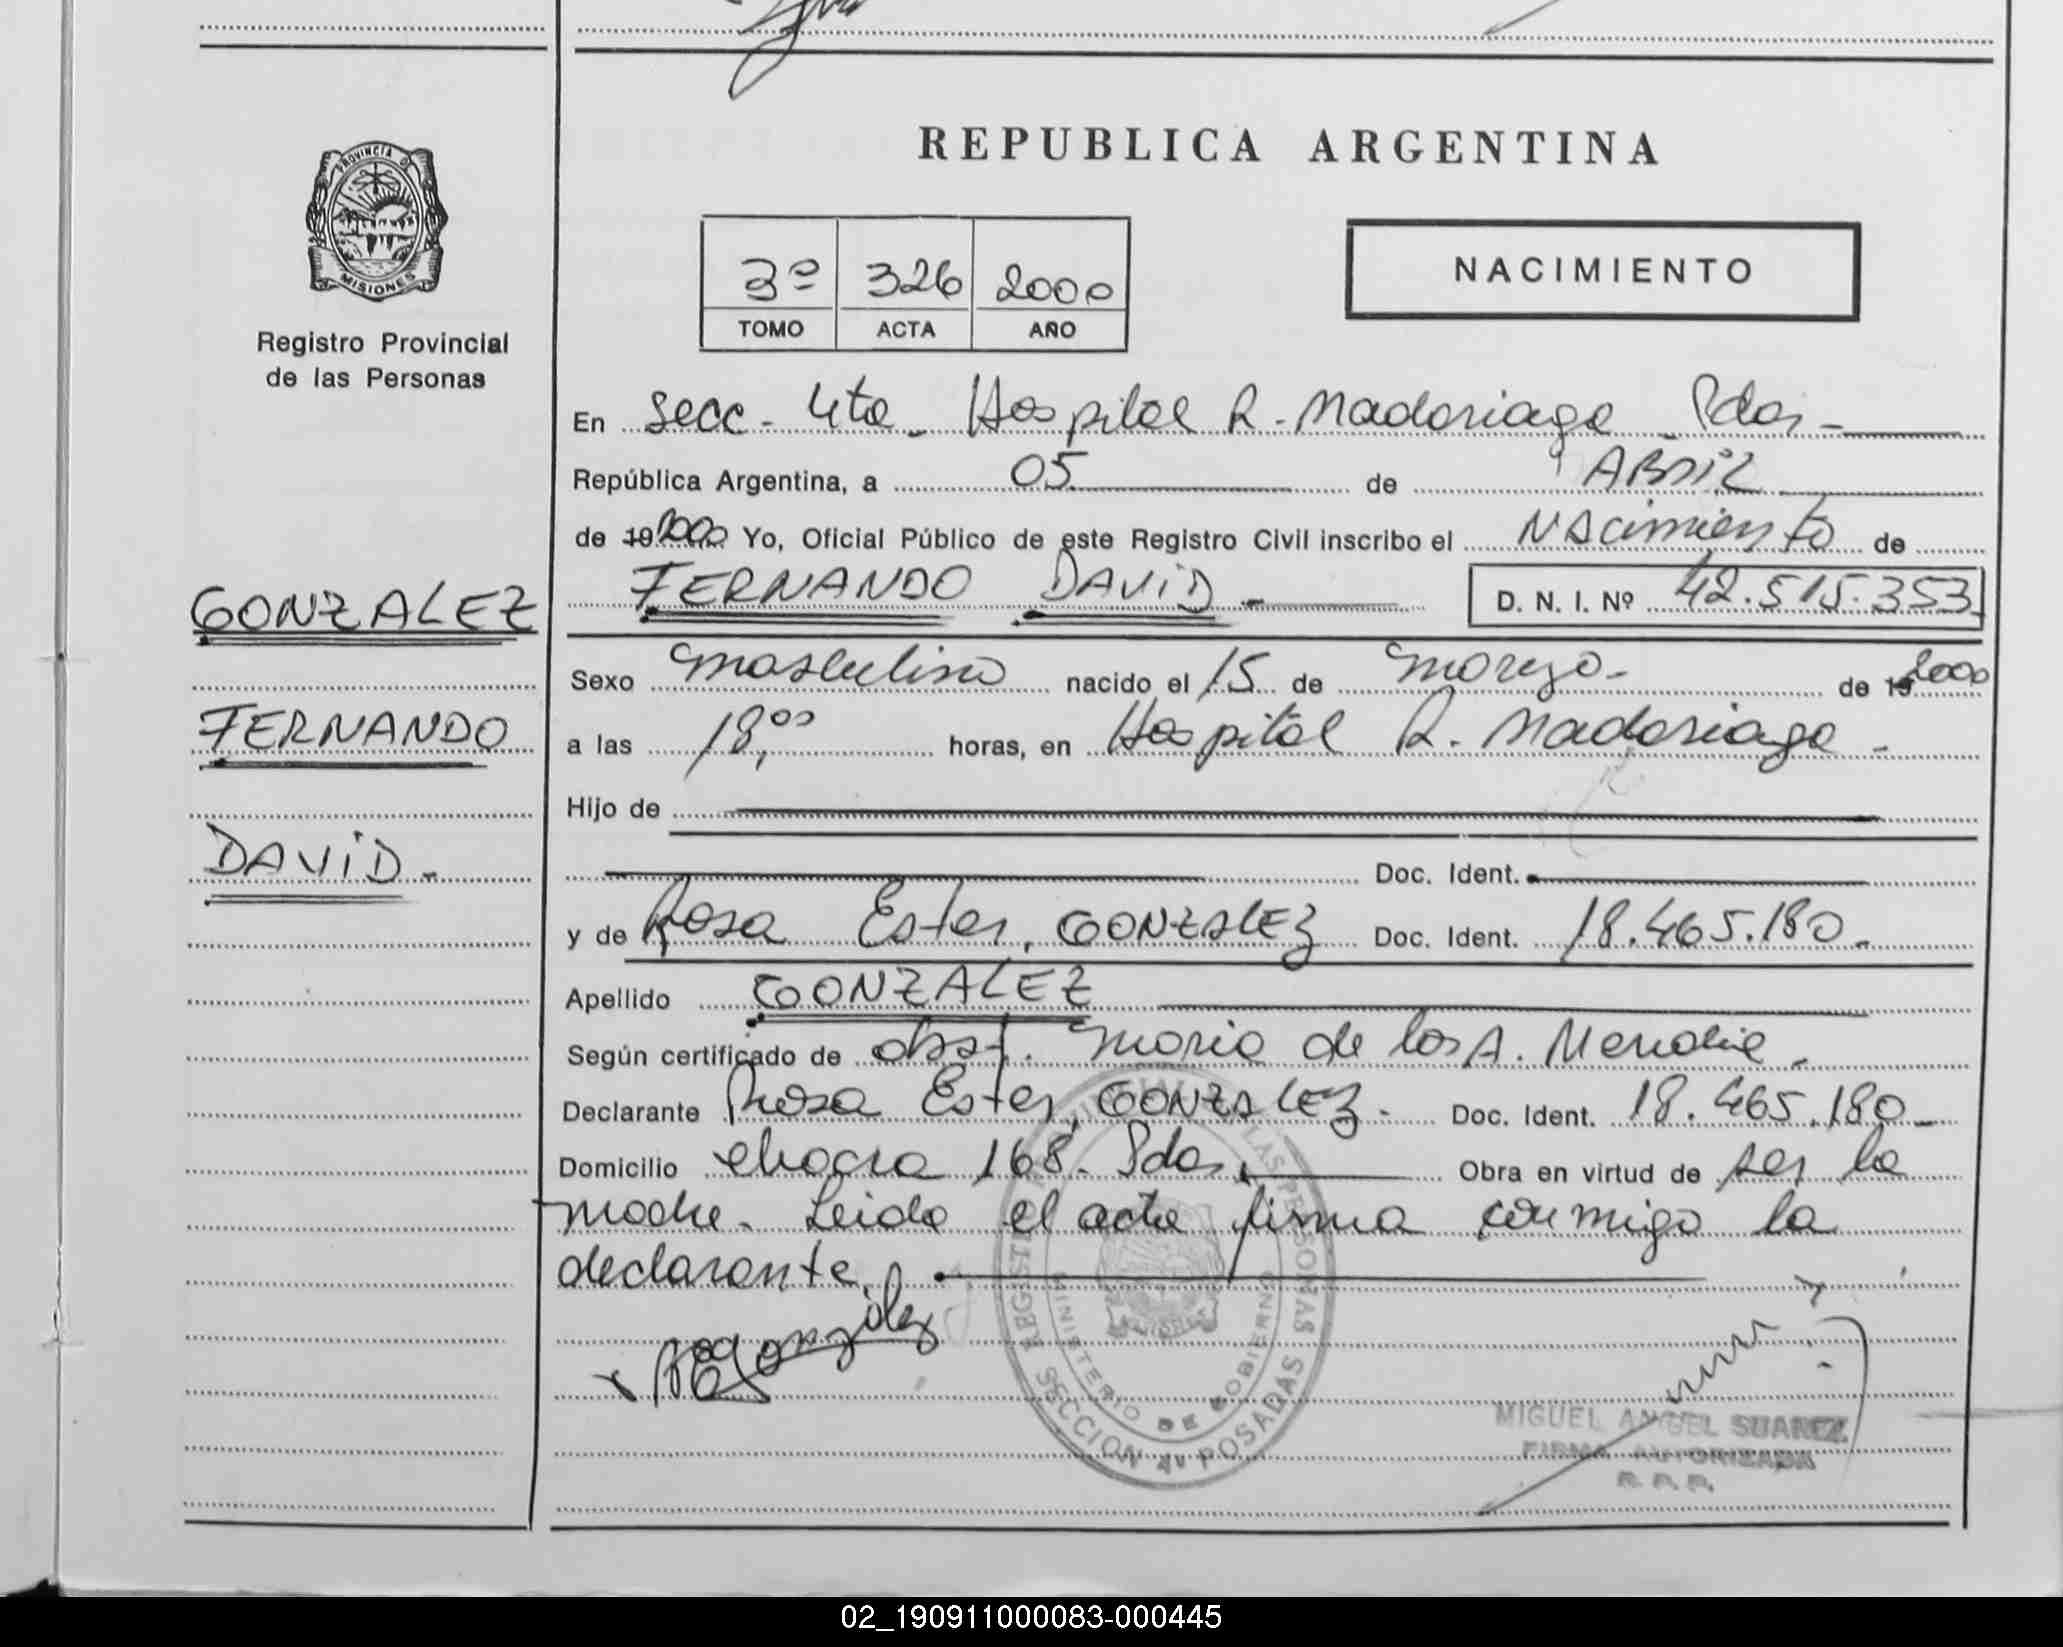 REPUBLICA ARGENTINA
PROVINCIA D
MISIONES
Registro Provincial
de las Personas
3º 326 2000
TOMO ACTA AÑO
NACIMIENTO
En Secc. 4ta. Hospital R. Madariaga Pdas.
República Argentina, a 05 de ABRIL
de 19 2000 Yo, Oficial Público de este Registro Civil inscribo el NACimiento de
FERNANDO DAViD D. N. I. Nº 42.515.353
GONZALEZ
FERNANDO
DAViD.
Sexo masculino nacido el 15 de marzo de 19 2000
a las 18,00 horas, en Hospital R. Madariaga.
Hijo de
Doc. Ident.
y de Rosa Ester, GONZALEZ Doc. Ident. 18.465.180.
Apellido GONZALEZ
Según certificado de obst. Maria de los A.
Declarante Rosa Ester, GONZALEZ. Doc. Ident. 18.465.180
Domicilio chacra 168. Pdas. Obra en virtud de ser la
madre. Leida el acta firma conmigo la
declarante.
REGISTRO PROVINCIAL DE LAS PERSONAS
MINISTERIO DE GOBIERNO
SECCION 4ta POSADAS
MIGUEL ANGEL SUAREZ
FIRMA AUTORIZADA
R. P. P.
02_190911000083-000445